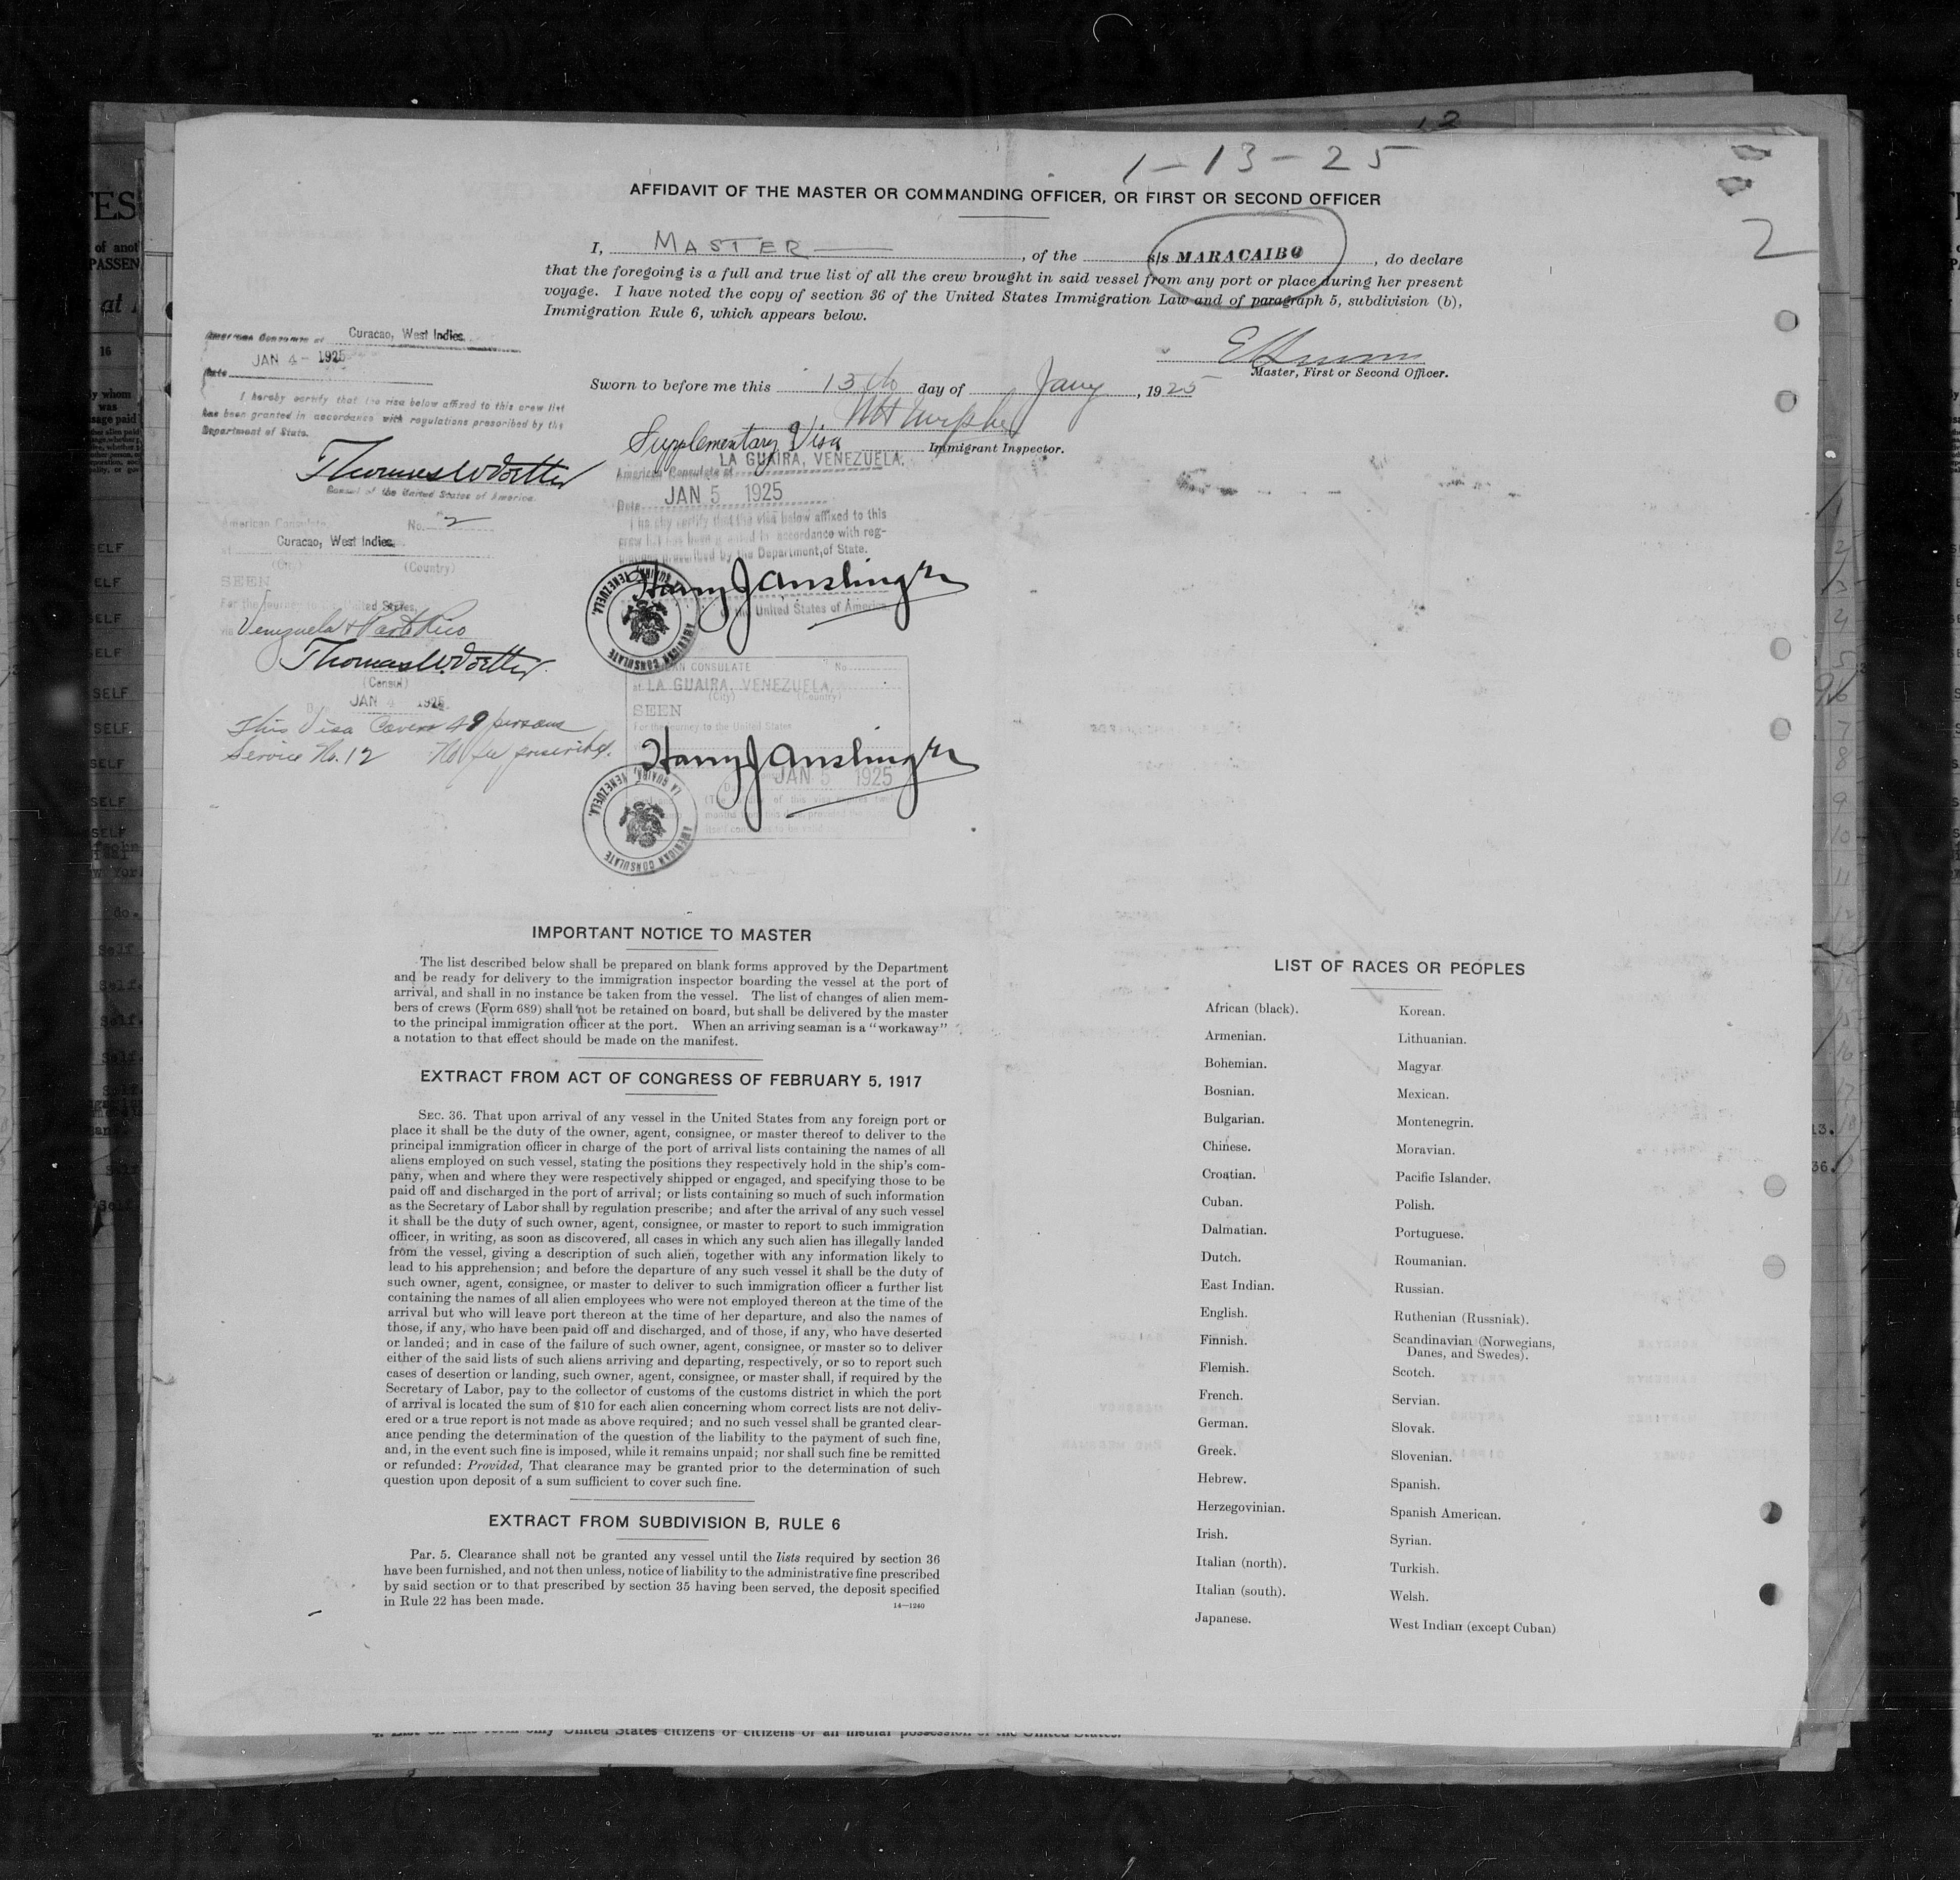 12
1-13-25
2
AFFIDAVIT OF THE MASTER OR COMMANDING OFFICER, OR FIRST OR SECOND OFFICER
I, MASTER, of the s/s MARACAIBO, do declare
that the foregoing is a full and true list of all the crew brought in said vessel from any port or place during her present
voyage. I have noted the copy of section 36 of the United States Immigration Law and of paragraph 5, subdivision (b),
Immigration Rule 6, which appears below.
Master, First or Second Officer.
Sworn to before me this 13th day of Jany, 1925
Immigrant Inspector.
American Consulate at Curacao, West Indies.
JAN 4 - 1925
Date
I hereby certify that the visa below affixed to this crew list
has been granted in accordance with regulations prescribed by the
Department of State.
Consul of the United States of America.
American Consulate, No. 2
at Curacao, West Indies.
(City) (Country)
SEEN
For the journey to the United States,
via Venezuela + Porto Rico
(Consul)
JAN 4 1925
This Visa Covers 49 persons
Service No. 12 No fee prescribed.
Supplementary Visa
LA GUAIRA, VENEZUELA.
American Consulate at
JAN 5 1925
Date
I hereby certify that the visa below affixed to this
crew list has been granted in accordance with reg-
ulations prescribed by the Department of State.
Harry J Anslinger
of the United States of America.
LA GUAIRA, VENEZUELA.
AMERICAN CONSULATE
AMERICAN CONSULATE No.
at LA GUAIRA, VENEZUELA,
(City) (Country)
SEEN
For the journey to the United States
Harry J Anslinger
JAN 5 1925
LA GUAIRA, VENEZUELA.
AMERICAN CONSULATE
IMPORTANT NOTICE TO MASTER
The list described below shall be prepared on blank forms approved by the Department
and be ready for delivery to the immigration inspector boarding the vessel at the port of
arrival, and shall in no instance be taken from the vessel. The list of changes of alien mem-
bers of crews (Form 689) shall not be retained on board, but shall be delivered by the master
to the principal immigration officer at the port. When an arriving seaman is a "workaway"
a notation to that effect should be made on the manifest.
EXTRACT FROM ACT OF CONGRESS OF FEBRUARY 5, 1917
SEC. 36. That upon arrival of any vessel in the United States from any foreign port or
place it shall be the duty of the owner, agent, consignee, or master thereof to deliver to the
principal immigration officer in charge of the port of arrival lists containing the names of all
aliens employed on such vessel, stating the positions they respectively hold in the ship's com-
pany, when and where they were respectively shipped or engaged, and specifying those to be
paid off and discharged in the port of arrival; or lists containing so much of such information
as the Secretary of Labor shall by regulation prescribe; and after the arrival of any such vessel
it shall be the duty of such owner, agent, consignee, or master to report to such immigration
officer, in writing, as soon as discovered, all cases in which any such alien has illegally landed
from the vessel, giving a description of such alien, together with any information likely to
lead to his apprehension; and before the departure of any such vessel it shall be the duty of
such owner, agent, consignee, or master to deliver to such immigration officer a further list
containing the names of all alien employees who were not employed thereon at the time of the
arrival but who will leave port thereon at the time of her departure, and also the names of
those, if any, who have been paid off and discharged, and of those, if any, who have deserted
or landed; and in case of the failure of such owner, agent, consignee, or master so to deliver
either of the said lists of such aliens arriving and departing, respectively, or so to report such
cases of desertion or landing, such owner, agent, consignee, or master shall, if required by the
Secretary of Labor, pay to the collector of customs of the customs district in which the port
of arrival is located the sum of $10 for each alien concerning whom correct lists are not deliv-
ered or a true report is not made as above required; and no such vessel shall be granted clear-
ance pending the determination of the question of the liability to the payment of such fine,
and, in the event such fine is imposed, while it remains unpaid; nor shall such fine be remitted
or refunded: Provided, That clearance may be granted prior to the determination of such
question upon deposit of a sum sufficient to cover such fine.
EXTRACT FROM SUBDIVISION B, RULE 6
Par. 5. Clearance shall not be granted any vessel until the lists required by section 36
have been furnished, and not then unless, notice of liability to the administrative fine prescribed
by said section or to that prescribed by section 35 having been served, the deposit specified
in Rule 22 has been made.
14—1240
LIST OF RACES OR PEOPLES
African (black).
Armenian.
Bohemian.
Bosnian.
Bulgarian.
Chinese.
Croatian.
Cuban.
Dalmatian.
Dutch.
East Indian.
English.
Finnish.
Flemish.
French.
German.
Greek.
Hebrew.
Herzegovinian.
Irish.
Italian (north).
Italian (south).
Japanese.
Korean.
Lithuanian.
Magyar.
Mexican.
Montenegrin.
Moravian.
Pacific Islander.
Polish.
Portuguese.
Roumanian.
Russian.
Ruthenian (Russniak).
Scandinavian (Norwegians,
Danes, and Swedes).
Scotch.
Servian.
Slovak.
Slovenian.
Spanish.
Spanish American.
Syrian.
Turkish.
Welsh.
West Indian (except Cuban)
4. List on this form only United States citizens or citizens of an insular possession of the United States.